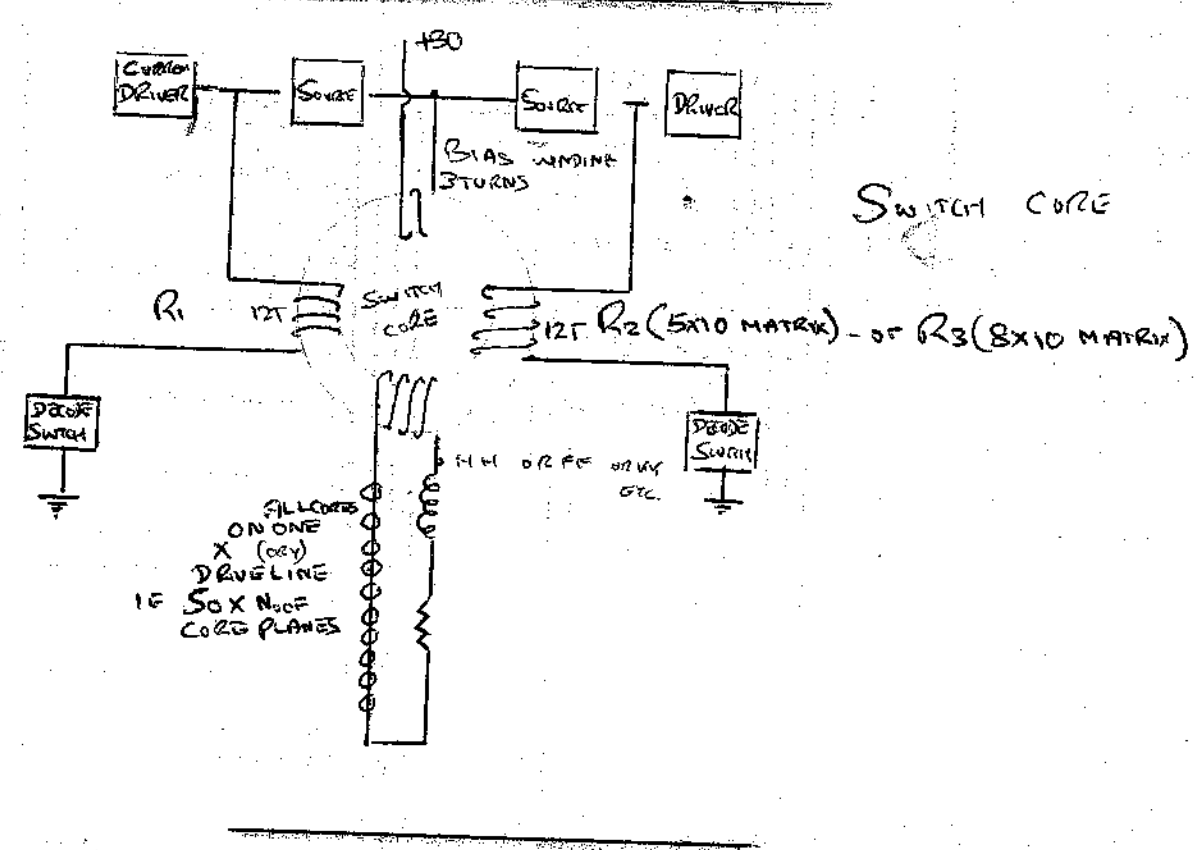 +30
CURREN
DRIVER
SOURCE
SOURCE
DRIVER
BIAS WINDING
3 TURNS
SWITCH CORE
R1
12T
SWITCH
CORE
12T R2 (5X10 MATRIX) - or R3 (8X10 MATRIX)
DECODE
SWITCH
DECODE
SWITCH
HH OR FF OR VV
ETC.
ALL CORES
ON ONE
X (OR Y)
DRIVE LINE
IE 50 X No OF
CORE PLANES